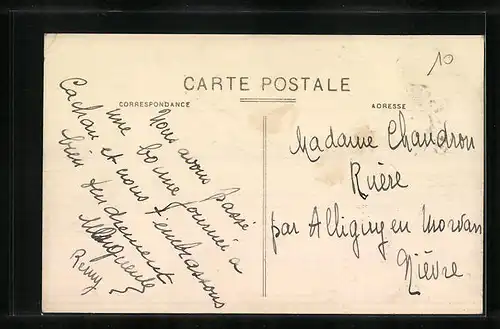 10
CARTE POSTALE
CORRESPONDANCE
ADRESSE
Nous avons passé
une bonne journée a
Cachan et nous t'embrassons
bien tendrement
Marguerite
Remy
Madame Chandron
Ruère
par Alligny en Morvan
Nièvre